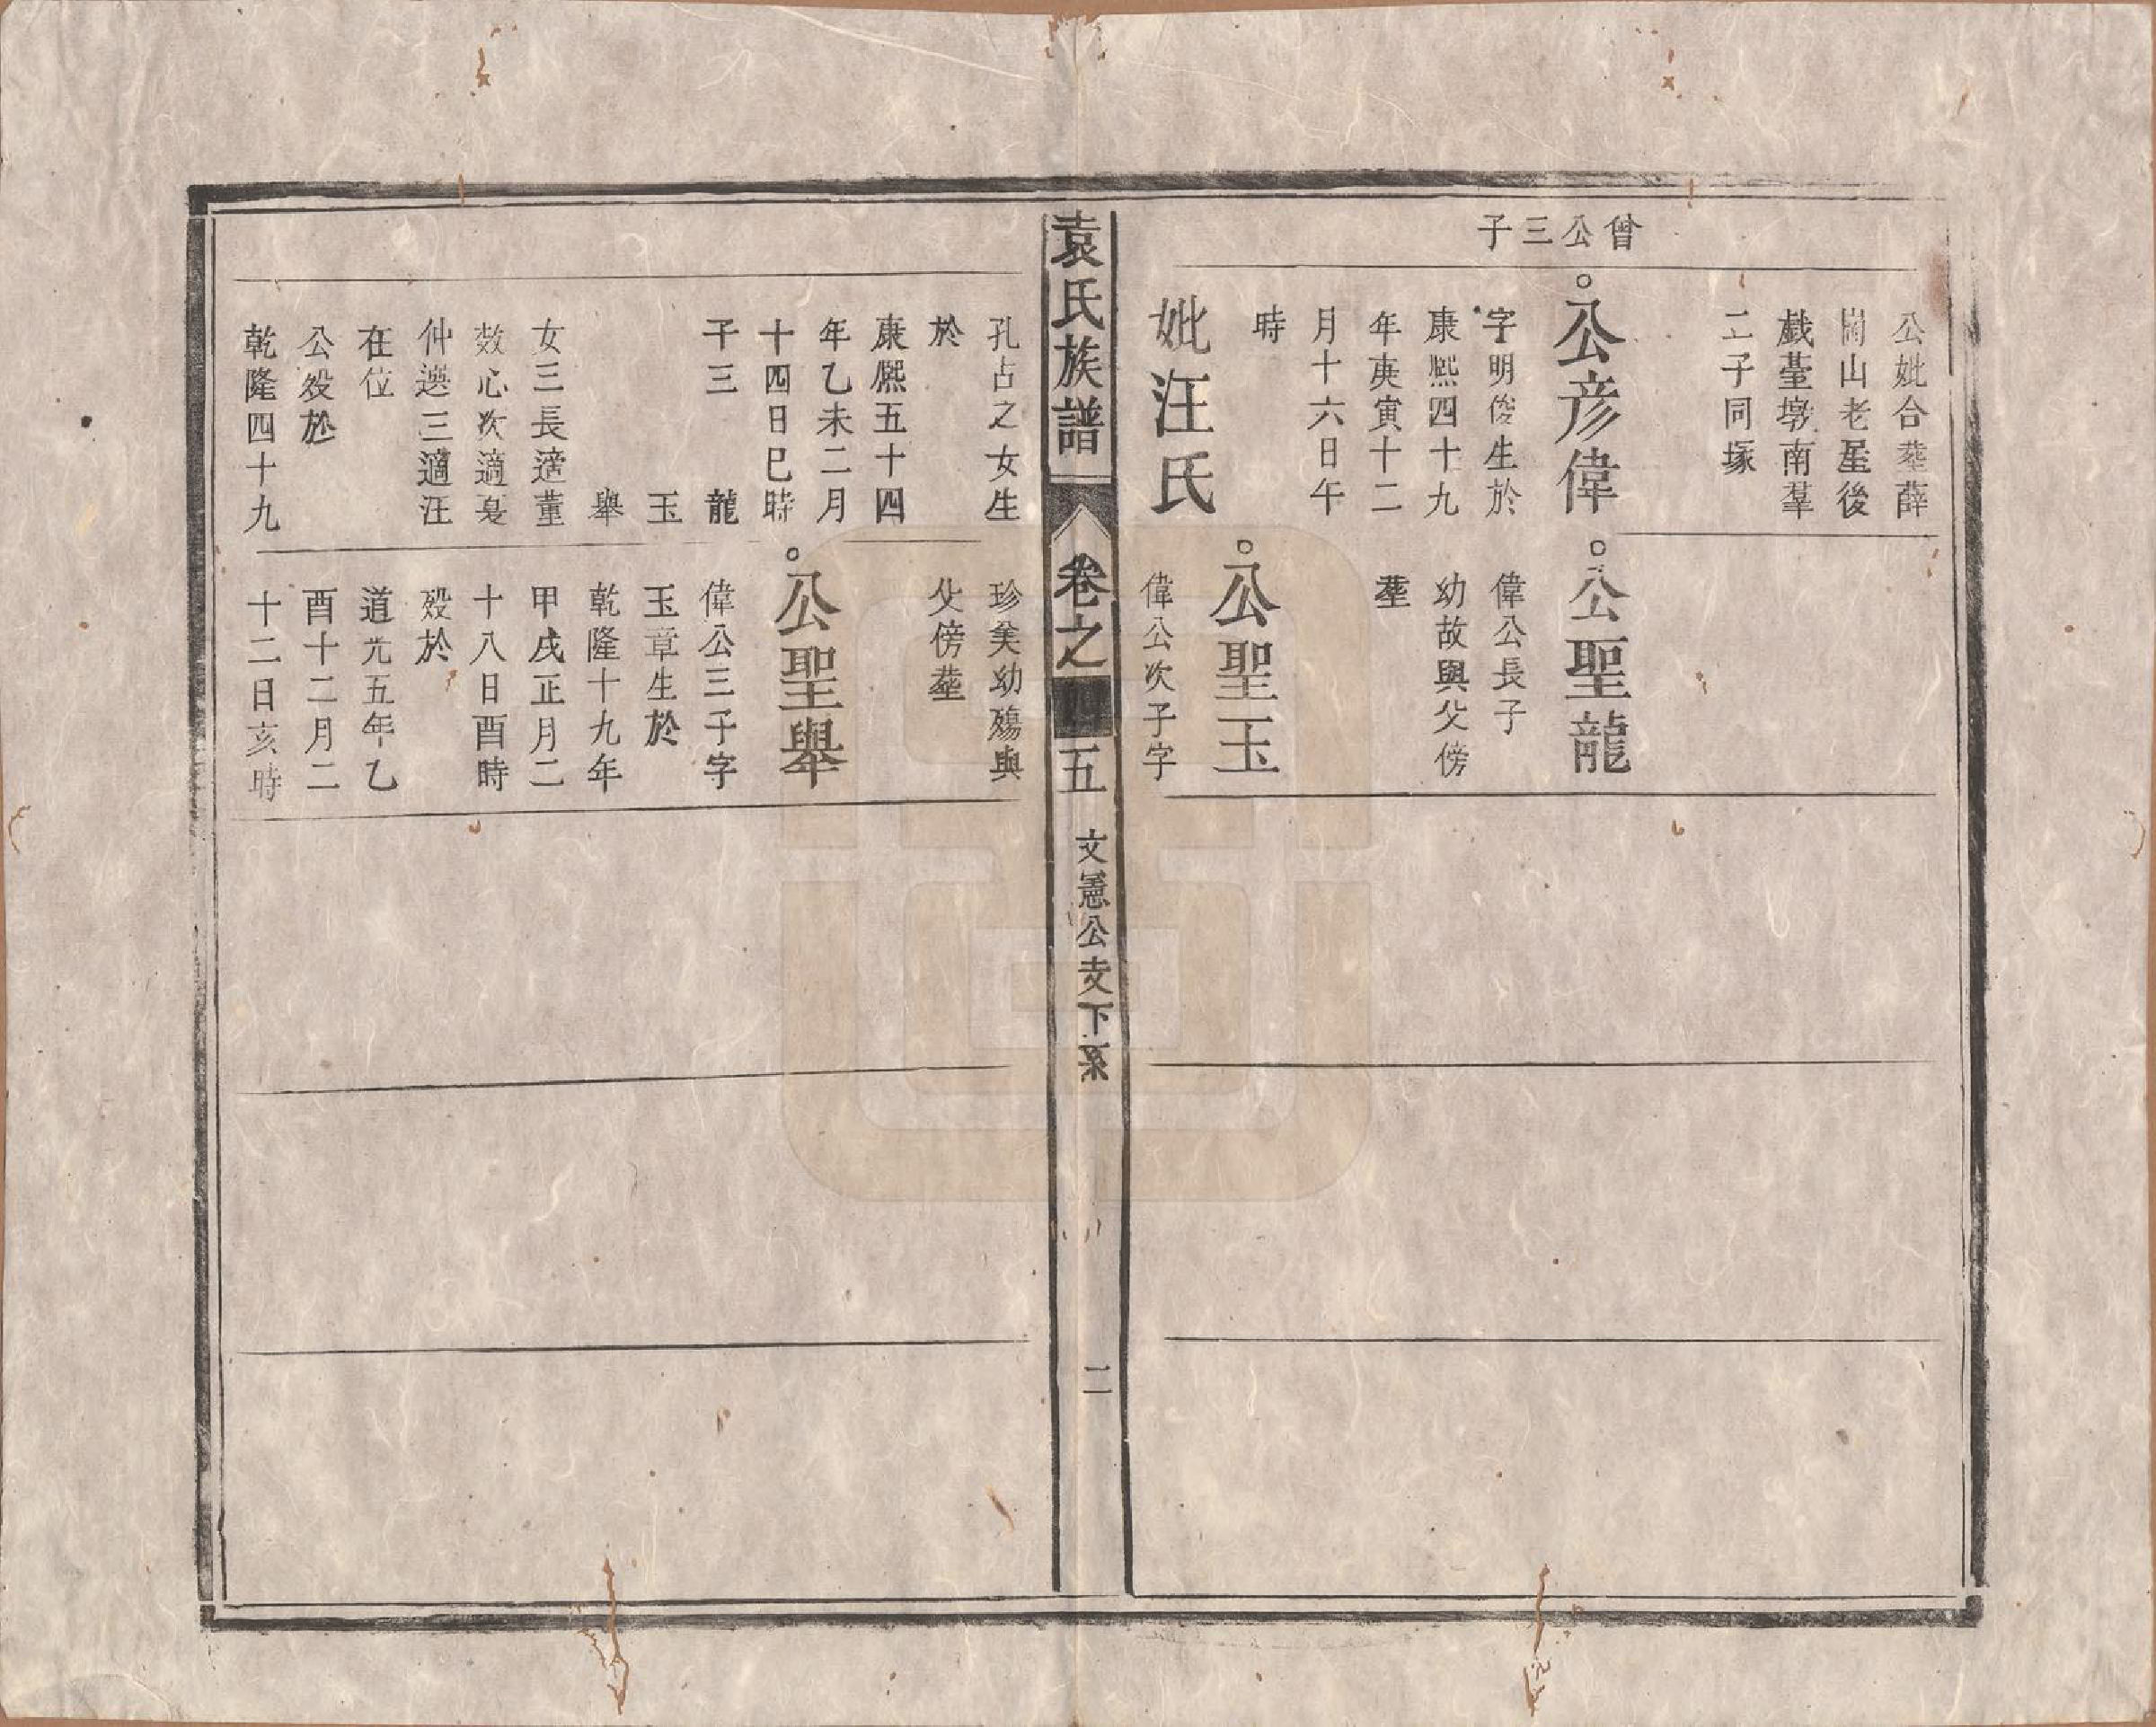 曾公三子
公妣合塟薛
崗山老星後
戯臺墩南羣
二子同塚
公彦偉
字明俊生於
康熙四十九
年庚寅十二
月十六日午
時
妣汪氏
公聖龍
偉公長子
幼故與父傍
塟
公聖玉
偉公次子字
袁氏族譜
卷之
五
文憲公支下系
二
孔占之女生
於
康熙五十四
年乙未二月
十四日巳時
子三 龍
玉
舉
女三長適董
效心次適夏
仲選三適汪
在位
公殁於
乾隆四十九
珍美幼殤與
父傍塟
公聖舉
偉公三子字
玉章生於
乾隆十九年
甲戌正月二
十八日酉時
殁於
道光五年乙
酉十二月二
十二日亥時